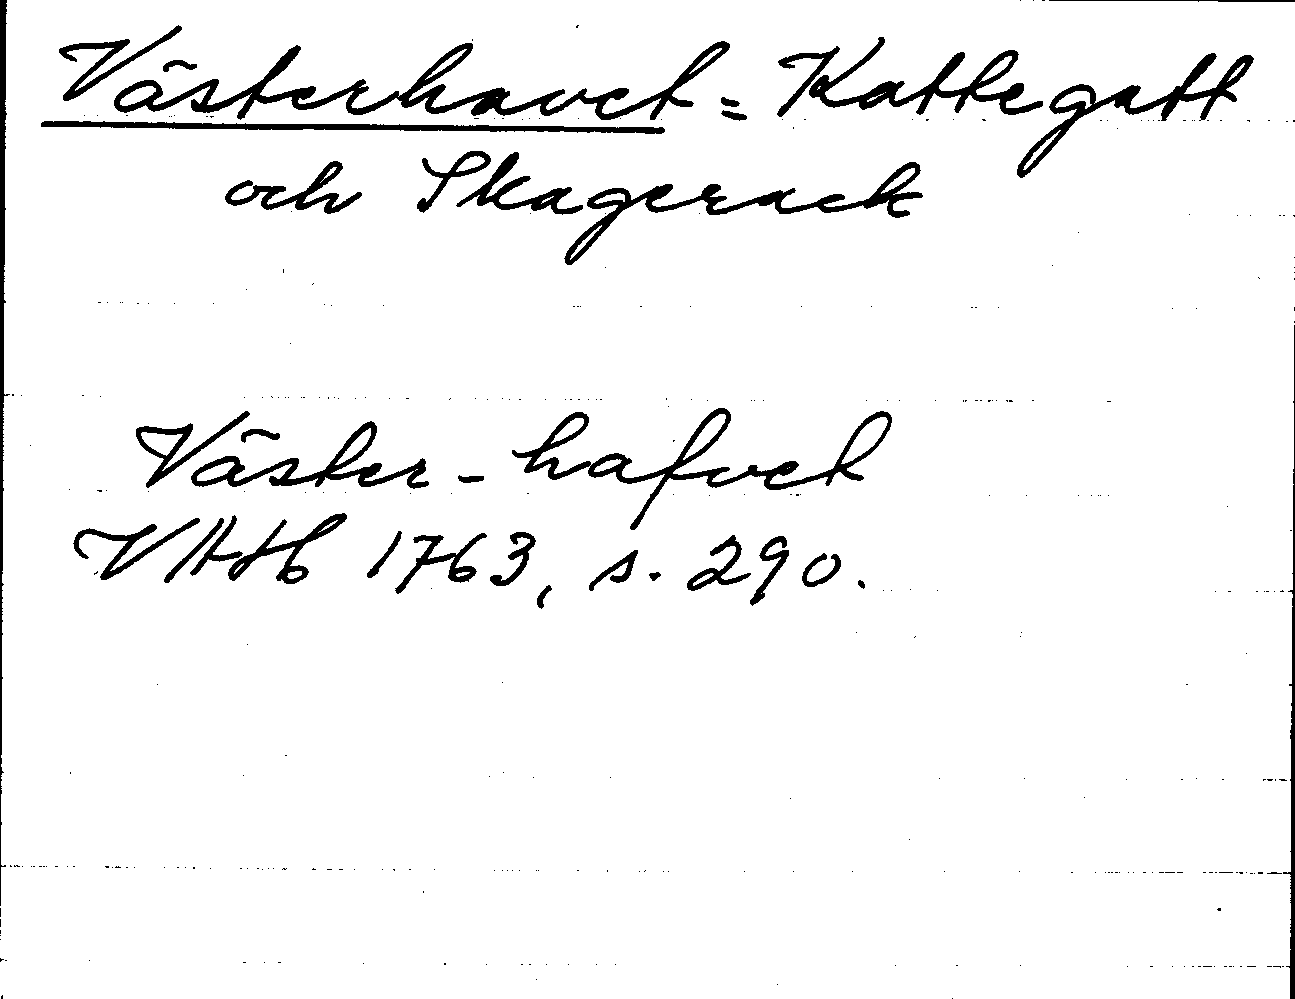 Västerhavet = Kattegatt
och Skagerack
Väster-hafvet
VAH 1763, s. 290.